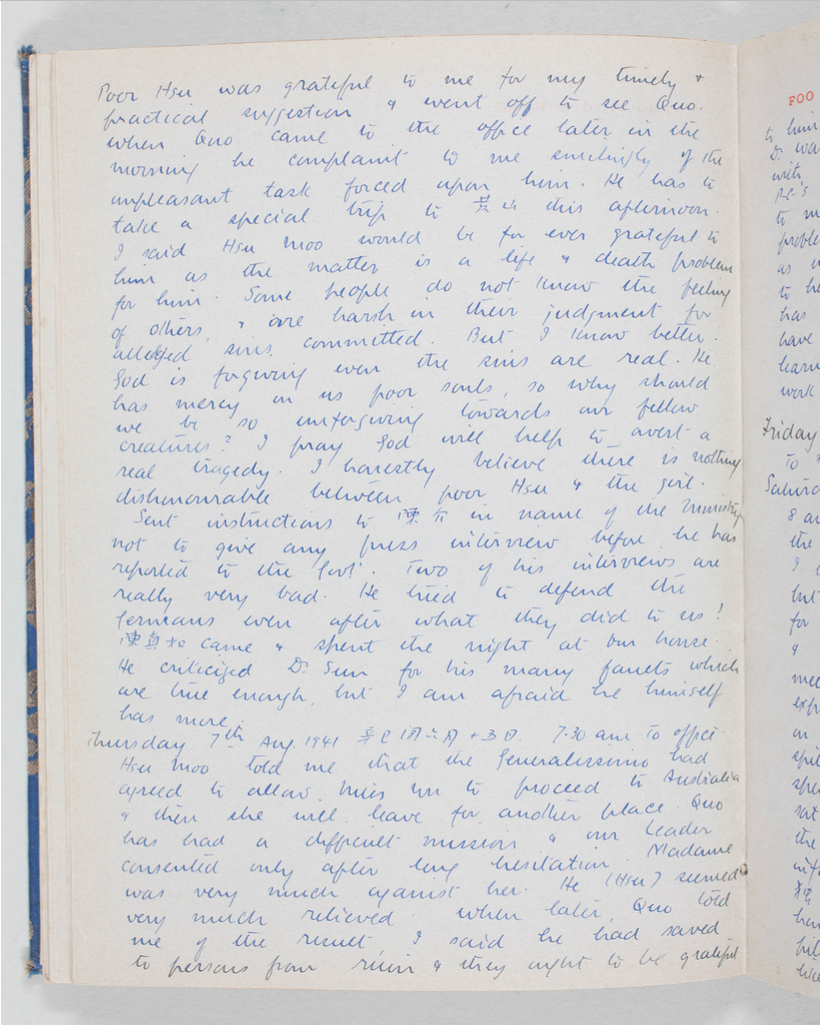 Poor Hsu was grateful to me for my timely +
practical suggestion & went off to see Quo.
when Quo came to the office later in the
morning he complaint to me smilingly of the
unpleasant task forced upon him. He has to
take a special trip to 黃山 this afternoon.
I said Hsu Moo would be for ever grateful to
him as the matter is a life & death problem
for him. Some people do not know the feeling
of others, & are harsh in their judgment for
alledged sins committed. But I know better.
God is forgiving even the sins are real. He
has mercy on us poor souls, so why should
we be so unforgiving towards our fellow
creatures? I pray God will help to avert a
real tragedy. I honestly believe there is nothing
dishonourable between poor Hsu & the girl.
Sent instructions to 陳介 in name of the ministry
not to give any press interview before he has
reported to the Govt. Two of his interviews are
really very bad. He tried to defend the
Germans even after what they did to us!
陳真如 came & spent the night at our house.
He criticized Dr Sun for his many faults which
are true enough, but I am afraid he himself
has more.
Thursday 7th Aug. 1941 辛巳 閏六月十五日. 7.30 am to office.
Hsu Moo told me that the Generalissimo had
agreed to allow Miss to proceed to Australia
& then she will leave for another place. Quo
has had a difficult mission & our Leader
consented only after long hesitation. Madame
was very much against her. He (Hsu) seemed
very much relieved when later, Quo told
me of the result, I said he had saved
to persons from ruin & they ought to be grateful
FOO
to him
Dr. was
with
to m
to he
has
have
learn
work
Friday
To
8 a
the
I
but
for
&
on
the